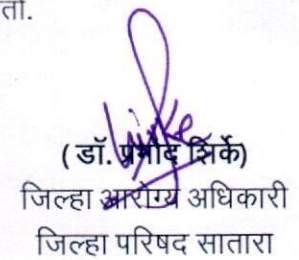 ता.
(डॉ. प्रमोद शिर्के)
जिल्हा आरोग्य अधिकारी
जिल्हा परिषद सातारा